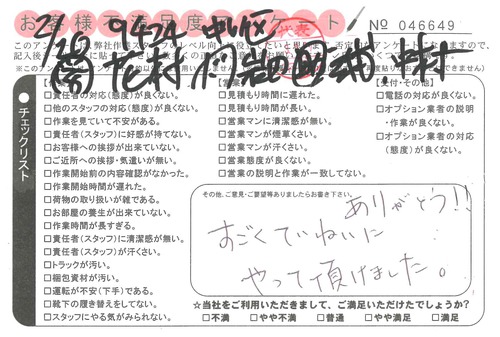 お客様不満足度アンケート!
№ 046649
2/18 9424 中川区
このアンケートは弊社作業
記入後
チェックリスト
□責任者の対応(態度)が良くない。
□他のスタッフの対応(態度)が良くない。
□作業を見ていて不安がある。
□責任者(スタッフ)に好感が持てない。
□お客様への挨拶が出来ていない。
□ご近所への挨拶・気遣いが無い。
□作業開始前の内容確認がなかった。
□作業開始時間が遅れた。
□荷物の取り扱いが雑である。
□お部屋の養生が出来ていない。
□作業時間が長すぎる。
□責任者(スタッフ)に清潔感が無い。
□責任者(スタッフ)が汗くさい。
□トラックが汚い。
□梱包資材が汚い。
□運転が不安(下手)である。
□靴下の履き替えをしてない。
□スタッフにやる気がみられない。
□見積もり時間に遅れた。
□見積もり時間が長い。
□営業マンに清潔感が無い。
□営業マンが煙草くさい。
□営業マンが汗くさい。
□営業態度が良くない。
□営業の説明と作業が一致してない。
【受付・その他】
□電話の対応が良くない。
□オプション業者の説明
・作業が良くない。
□オプション業者の対応
(態度)が良くない。
その他、ご意見・ご要望等ありましたらお書き下さい。
ありがとう!!
すごくていねいに
やって頂けました。
☆当社をご利用いただきまして、ご満足いただけたでしょうか?
□不満 □やや不満 □普通 □やや満足 □満足